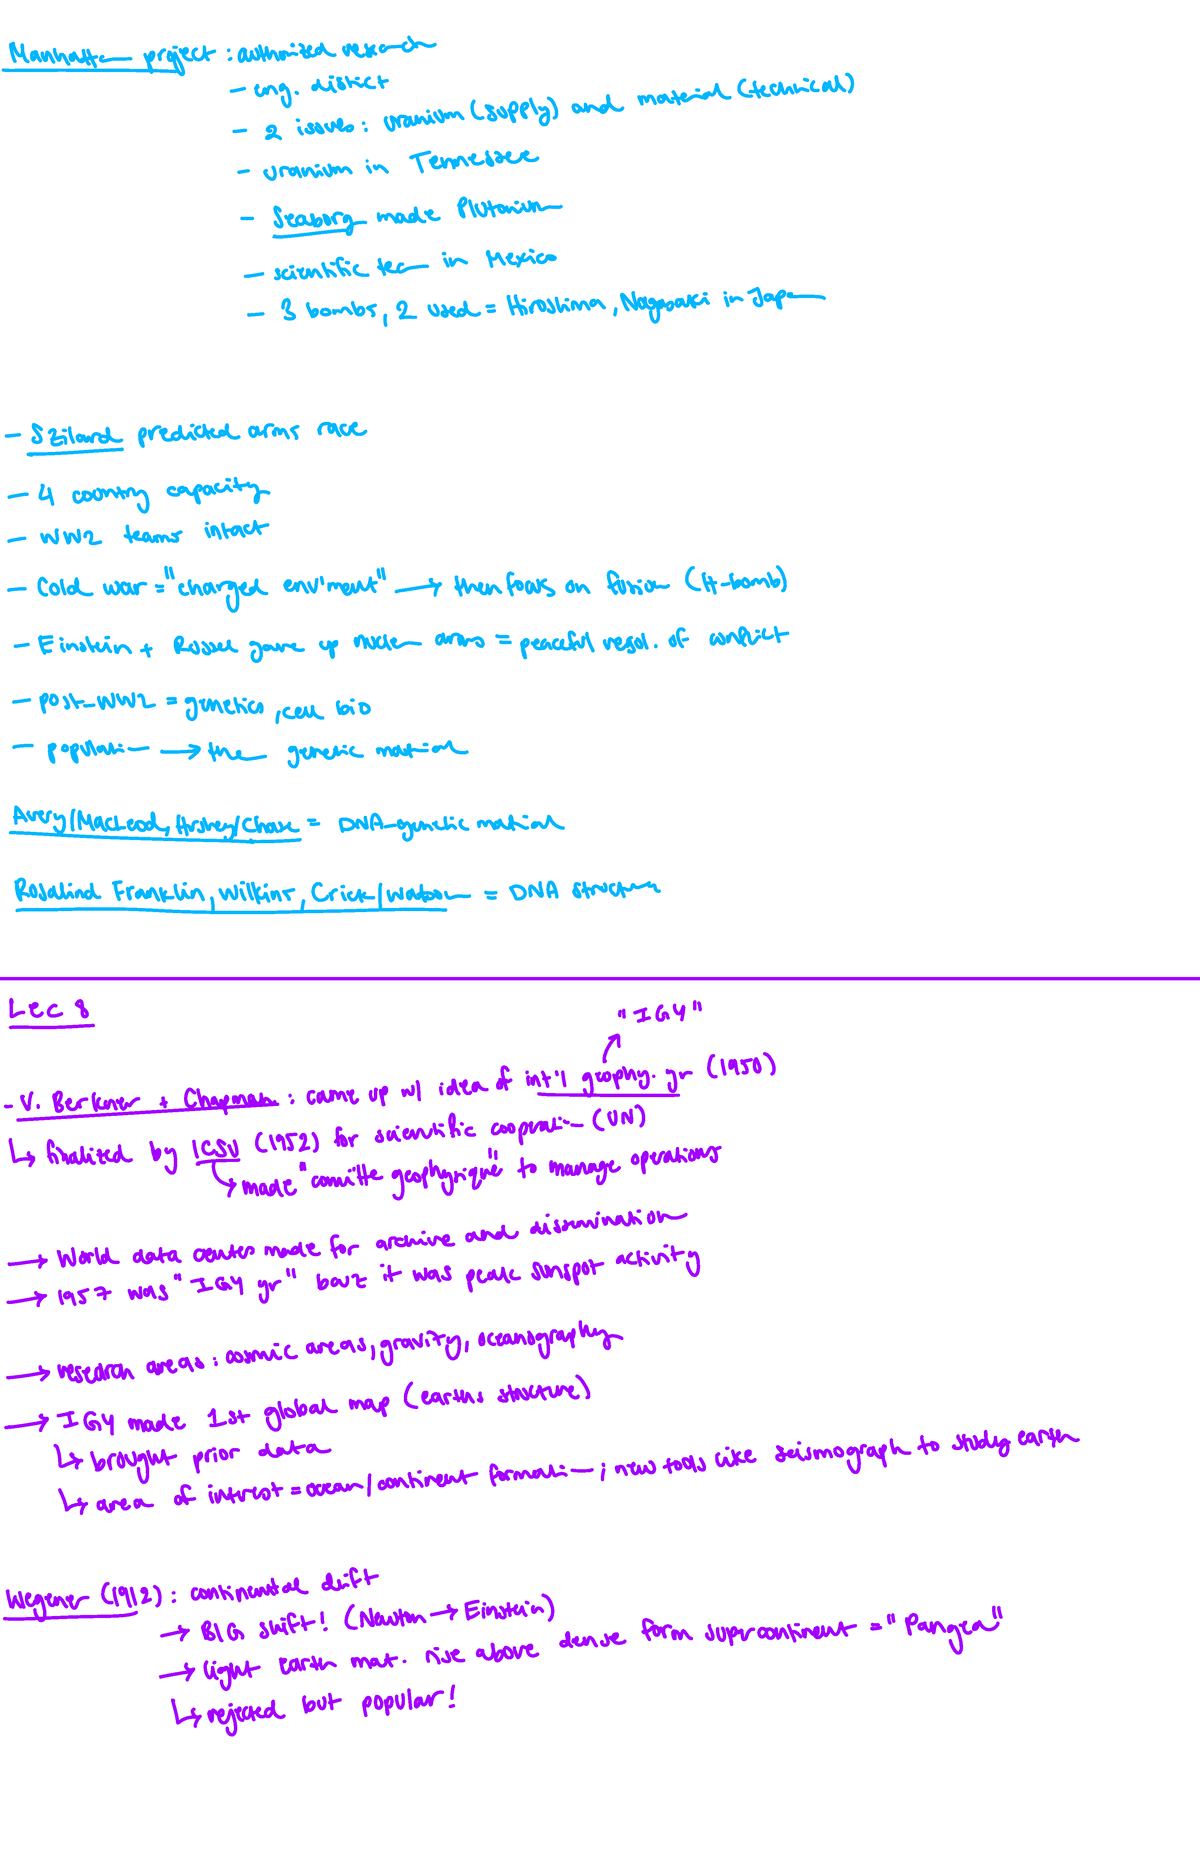 Manhattan project : authorized research
- eng. district
- 2 issues: uranium (supply) and material (technical)
- uranium in Tennessee
- Seaborg made Plutonium
- scientific team in Mexico
- 3 bombs, 2 used = Hiroshima, Nagasaki in Japan
- Szilard predicted arms race
- 4 country capacity
- WW2 teams intact
- Cold war = "charged env'ment" → then focus on fusion (H-bomb)
- Einstein + Russel gave up nuclear arms = peaceful resol. of conflict
- post-WW2 = genetics, cell bio
- population → the genetic material
Avery/MacLeod, Hershey/Chase = DNA-genetic material
Rosalind Franklin, Wilkins, Crick/Watson = DNA structure
Lec 8
"IGY"
- V. Berkner + Chapman : came up w/ idea of int'l geophy. yr (1950)
↳ finalized by ICSU (1952) for scientific cooperation (UN)
↳ made "comitte geophysique" to manage operations
→ World data center made for archive and dissemination
→ 1957 was "IGY yr" bcuz it was peak sunspot activity
→ research areas : cosmic areas, gravity, oceanography
→ IGY made 1st global map (earths structure)
↳ brought prior data
↳ area of interest = ocean/continent formation ; new tools like seismograph to study earth
Wegener (1912) : continental drift
→ BIG shift! (Newton → Einstein)
→ light earth mat. rise above dense form supercontinent = "Pangea"
↳ rejected but popular!